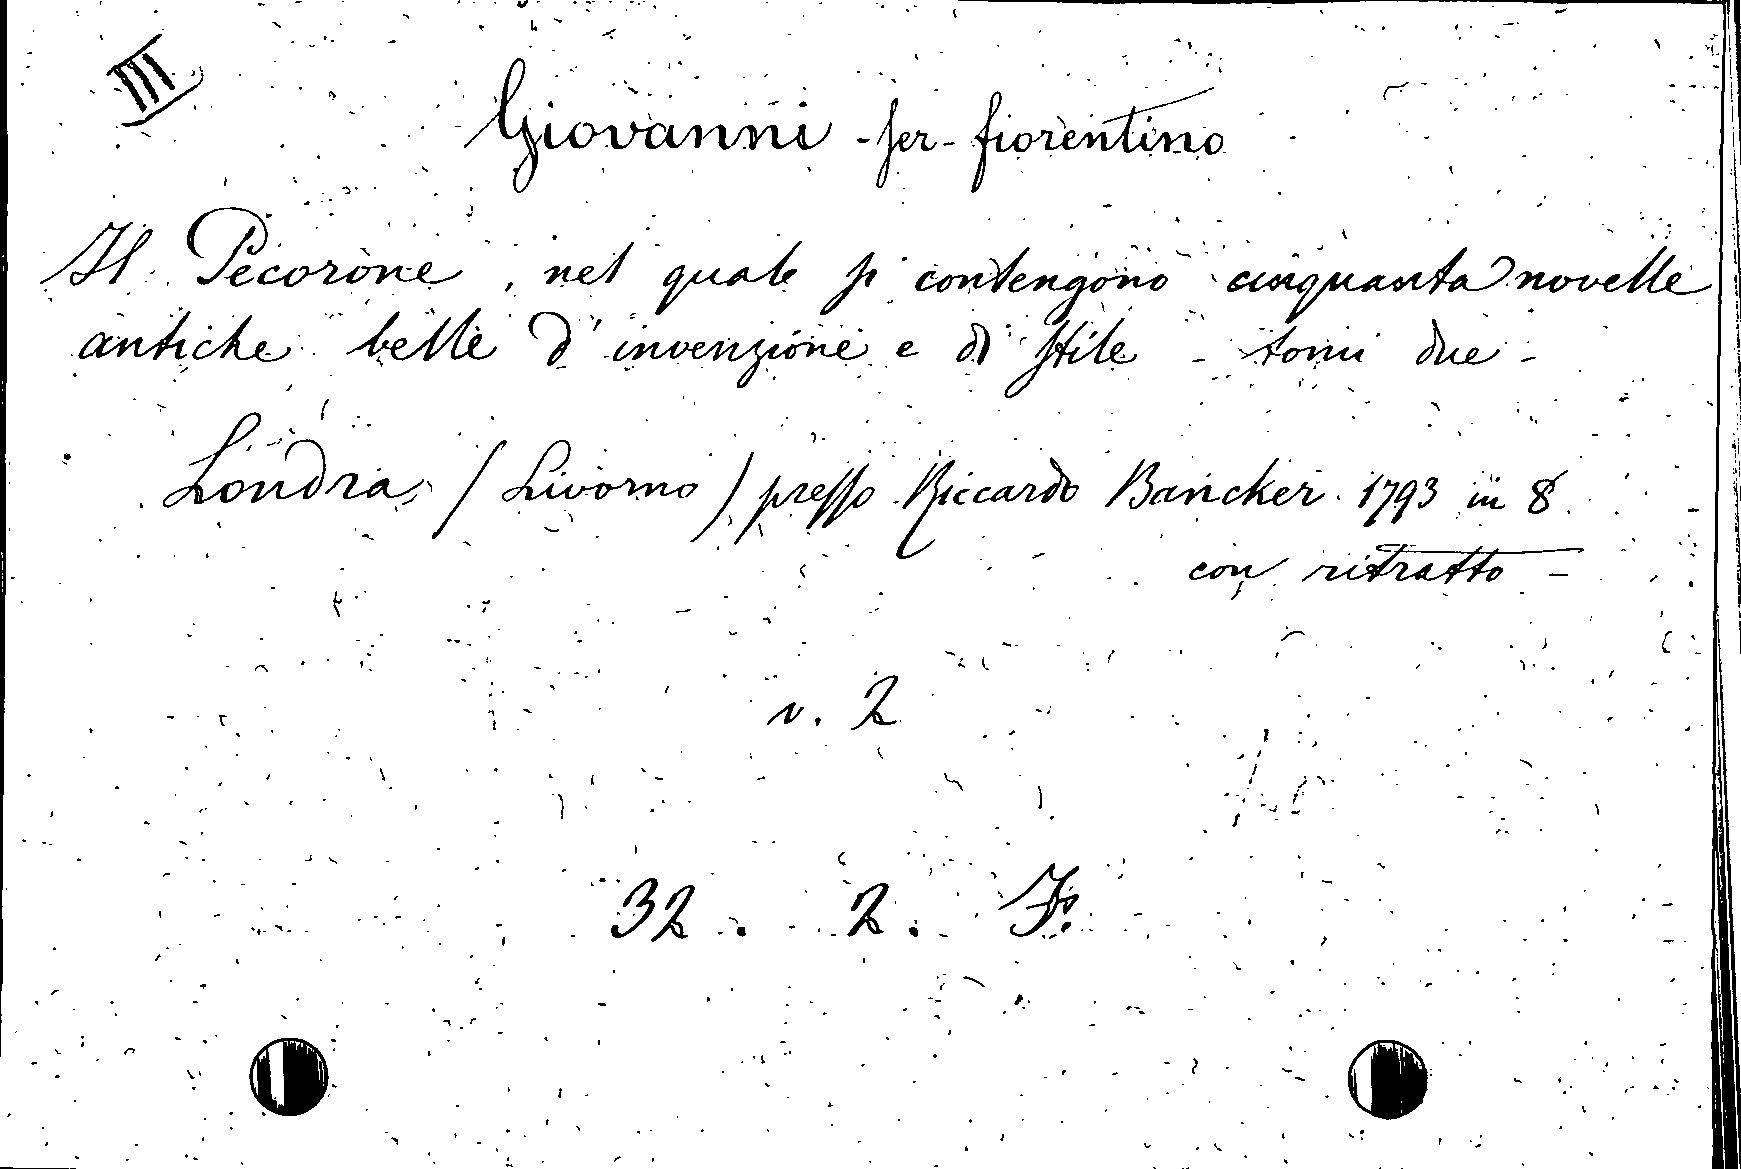 III
Giovanni - ser - fiorentino
Il Pecorone, nel quale si contengono cinquanta novelle
antiche belle d'invenzione e di stile - tomi due -
Londra, (Livorno) presso Riccardo Bancker 1793 in 8
con ritratto -
v. 2
32 . 2. F.